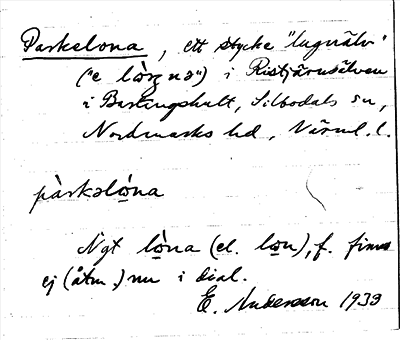 Parkelona, ett stycke "lugnälv"
("e lò̱ŋnə") i Ristjärnsälven
i Bastingshult, Silbodals sn,
Nordmarks hd, Värml. l.
pàrkəlò̱na
Ngt lò̱na (el. lo̱n), f. finns
ej (åtm.) nu i dial.
E. Andersson 1933